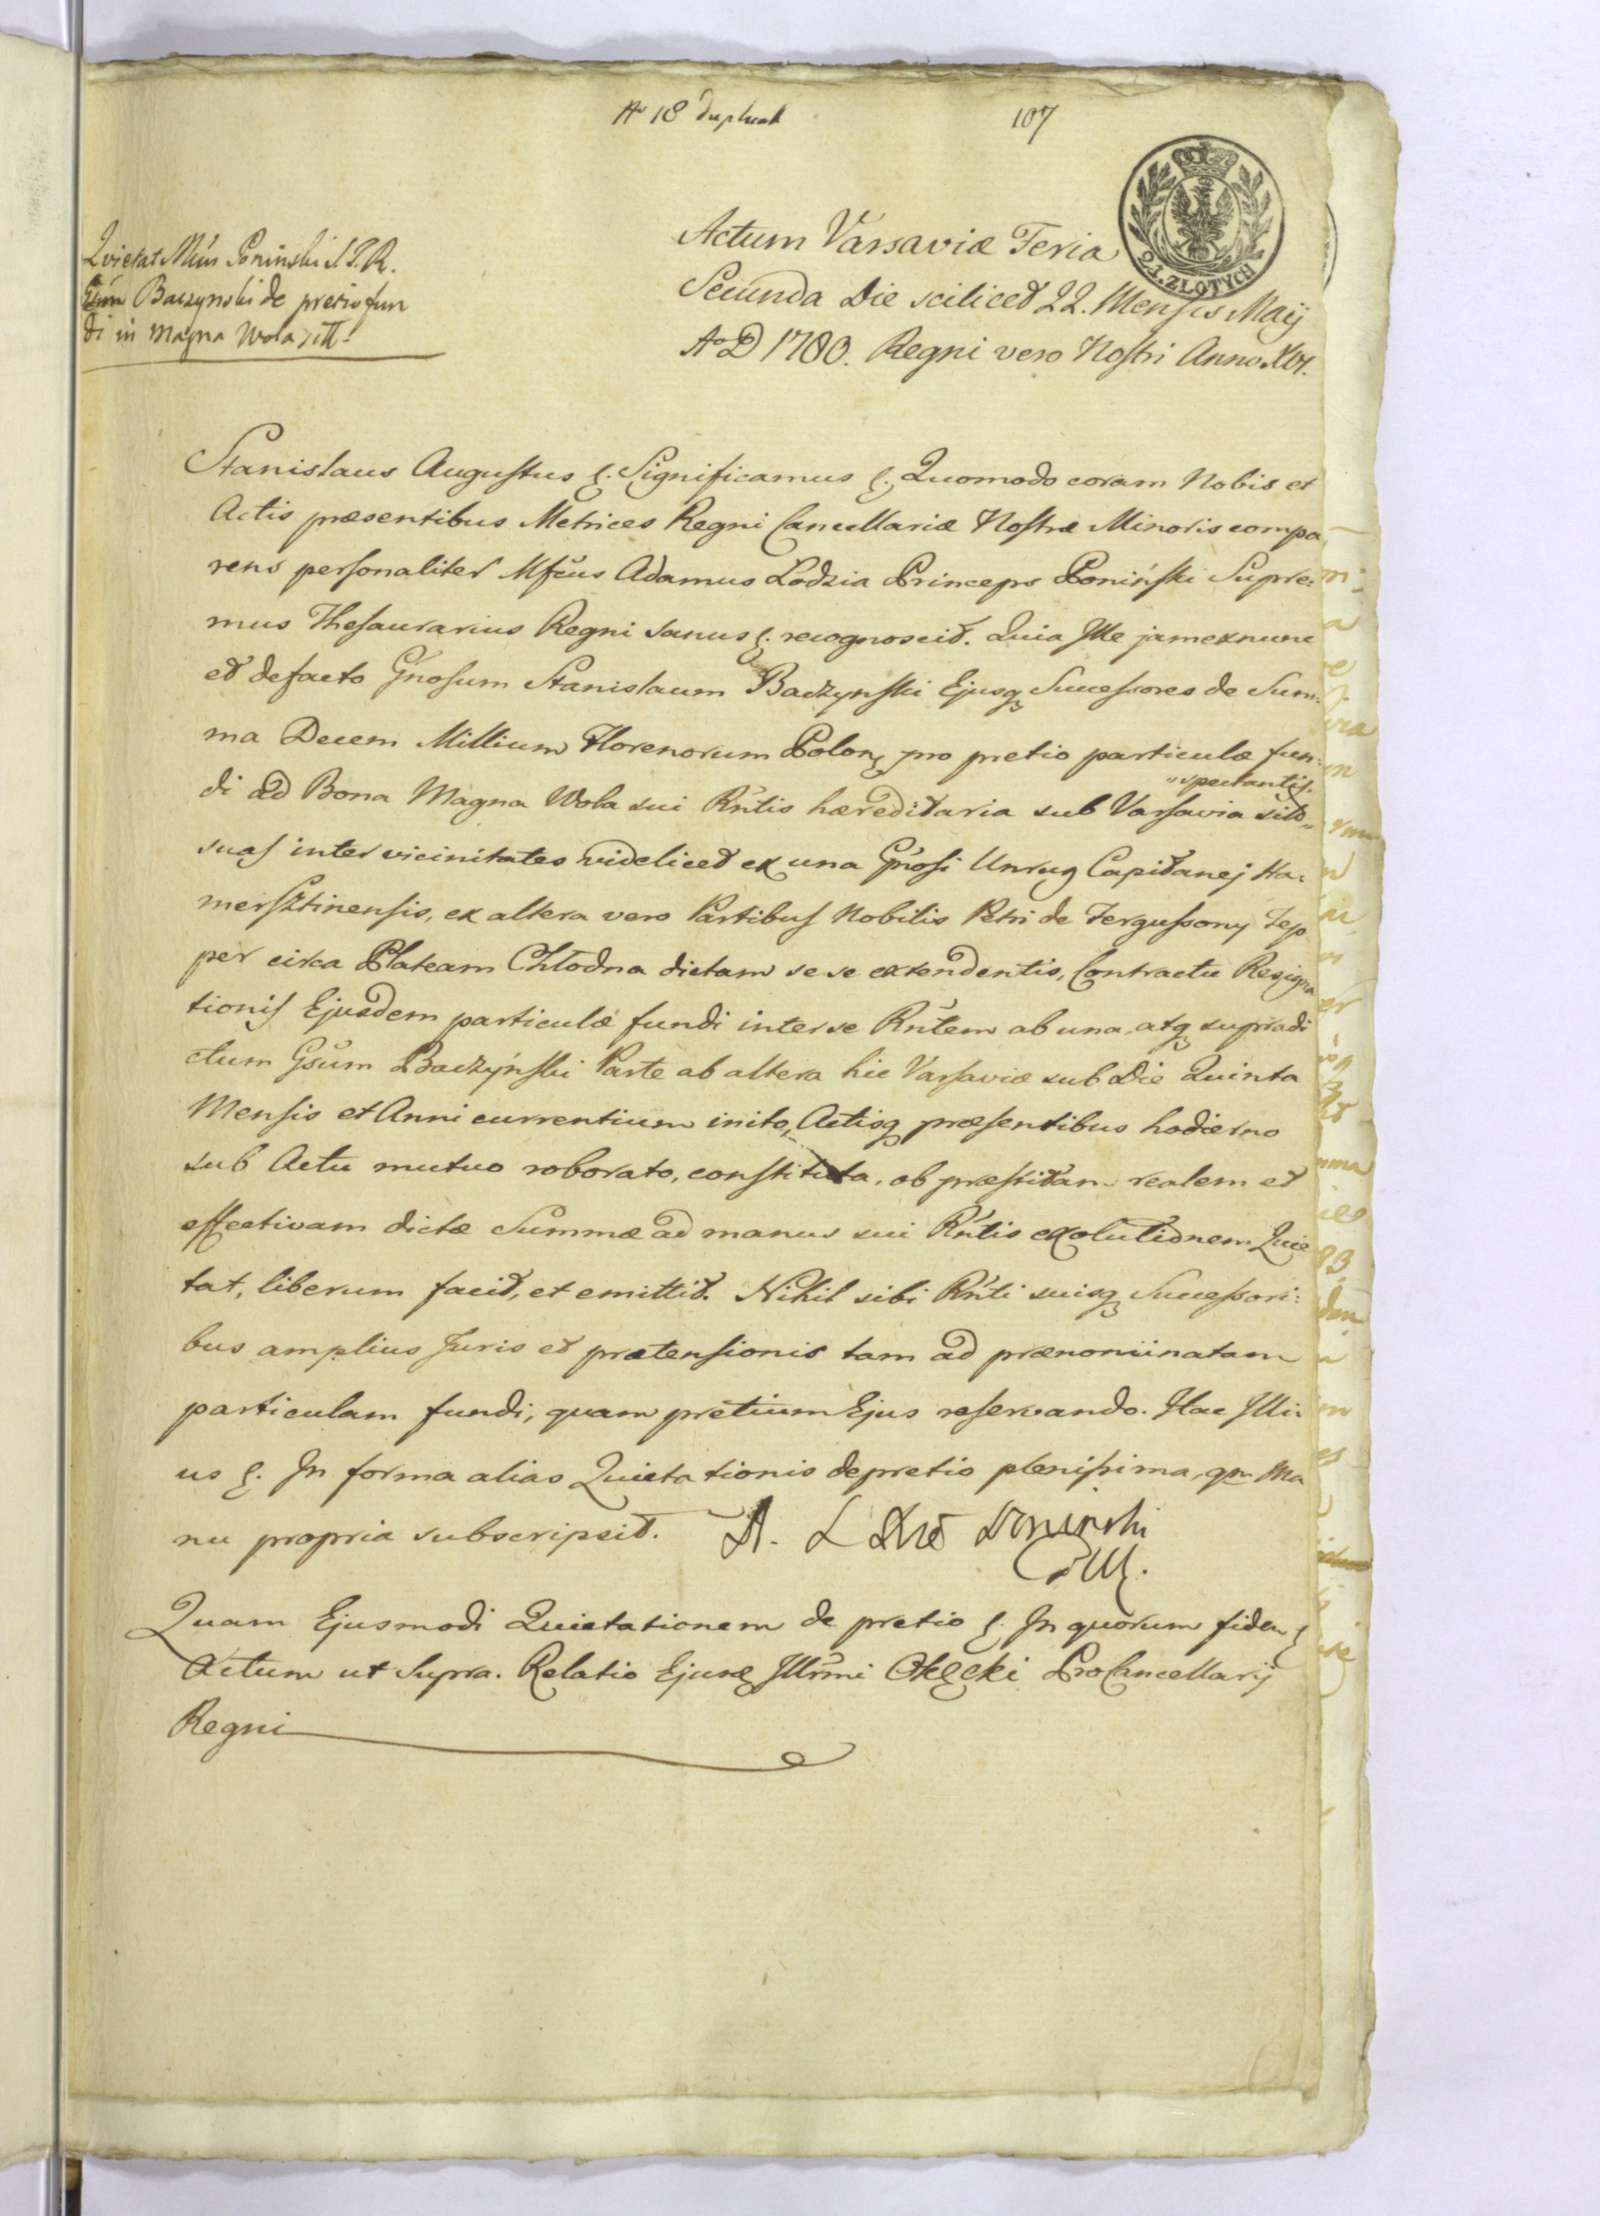 No 18 duplicat
107
2 1. ZŁOTYCH
Quietat Mcus Poninski S. T. R.
Gsum Baczynski de pretio fun
di in Magna Wola siti
Actum Varsaviæ Feria
Secunda Die scilicet 22. Mensis Maij
Ao D 1780. Regni vero Nostri Anno XVI.
Stanislaus Augustus &. Significamus &. Quomodo coram Nobis et
Actis præsentibus Metrices Regni Cancellariæ Nostræ Minoris compa
rens personaliter Mfcus Adamus Lodzia Princeps Poniński Supre:
mus Thesaurarius Regni sanus &. recognoscit. Quia Ille jam ex nunc
et de facto Gnosum Stanislaum Baczynski Ejusq Successores de Sum:
ma Decem Millium Florenorum Polon pro pretio particulæ fun:
di ad Bona Magna Wola sui Rntis hæreditaria sub Varsavia sito
spectantis
suas inter vicinitates videlicet ex una Gnosi Unrug Capitanej Ha:
mersztinensis, ex altera vero Partibus Nobilis Petri de Fergussony Tep
per circa Plateam Chłodna dictam se se extendentis, Contractu Resigna
tionis Ejusdem particulæ fundi inter se Rntem ab una, atq supradi
ctum Gsum Baczyński Parte ab altera hic Varsaviæ sub Die Quinta
Mensis et Anni currentium inito, Actisq præsentibus hodierno
sub Actu mutuo roborato, constituta, ob præstitam realem et
effectivam dictæ Summæ ad manus sui Rntis exolutionem Quie
tat, liberum facit, et emittit. Nihil sibi Rnti suisq Successori:
bus amplius Juris et prætensionis tam ad prænominatam
particulam fundi, quam pretium Ejus reservando. Hac Illi
us &. In forma alias Quietationis de pretio plenissima, qm Ma
nu propria subscripsit. A. L Poninski
Quam Ejusmodi Quietationem de pretio &. In quorum fidem &
Actum ut Supra. Relatio Ejusd Illrmi Okęcki ProCancellarij
Regni